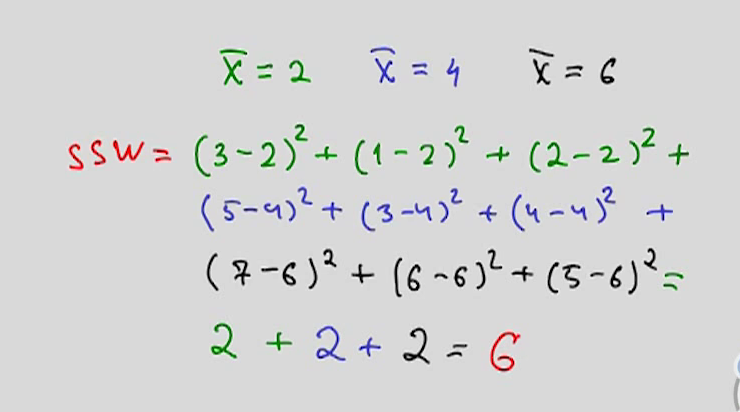 x̄ = 2 x̄ = 4 x̄ = 6
SSW = (3-2)² + (1-2)² + (2-2)² +
(5-4)² + (3-4)² + (4-4)² +
(7-6)² + (6-6)² + (5-6)² =
2 + 2 + 2 = 6